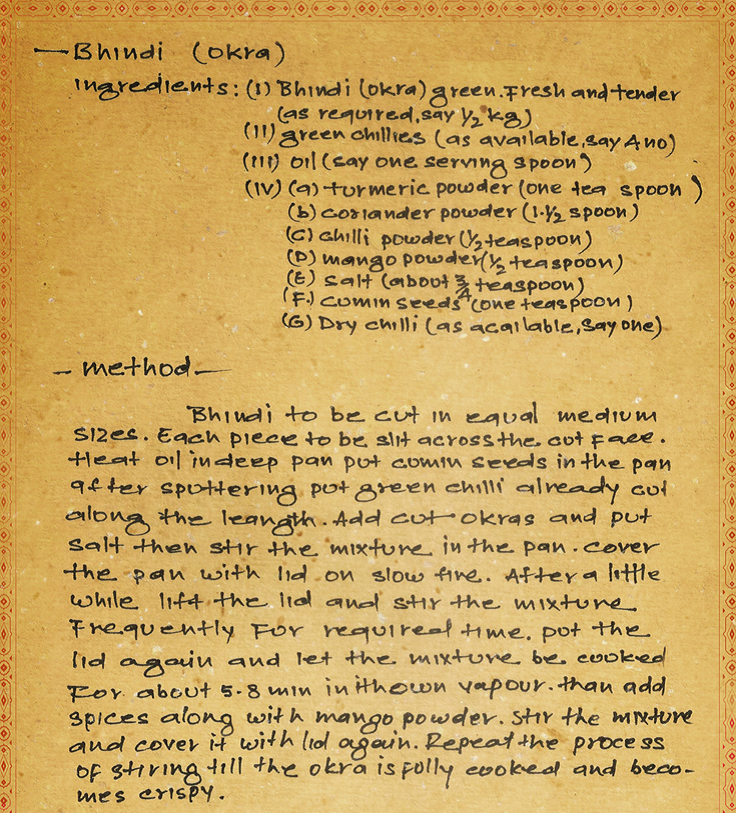 — Bhindi (okra)
ingredients: (I) Bhindi (okra) green. Fresh and tender
(as required, say 1/2 kg)
(II) green chillies (as available, say 4 no)
(III) oil (say one serving spoon)
(IV) (a) turmeric powder (one tea spoon)
(b) coriander powder (1.1/2 spoon)
(C) chilli powder (1/2 teaspoon)
(D) mango powder (1/2 teaspoon)
(E) salt (about 3/4 teaspoon)
(F.) cumin seeds (one teaspoon)
(G) Dry chilli (as acailable, Say one)
- method -
Bhindi to be cut in equal medium
sizes. Each piece to be slit across the cut face.
Heat oil in deep pan put cumin seeds in the pan
after sputtering put green chilli already cut
along the leangth. Add cut okras and put
salt then stir the mixture in the pan. cover
the pan with lid on slow fire. After a little
while lift the lid and stir the mixture
Frequently For required time. put the
lid again and let the mixture be cooked
For about 5-8 min in ithown vapour. than add
spices along with mango powder. Stir the mixture
and cover it with lid again. Repeat the process
of stiring till the okra is fully cooked and beco-
mes crispy.